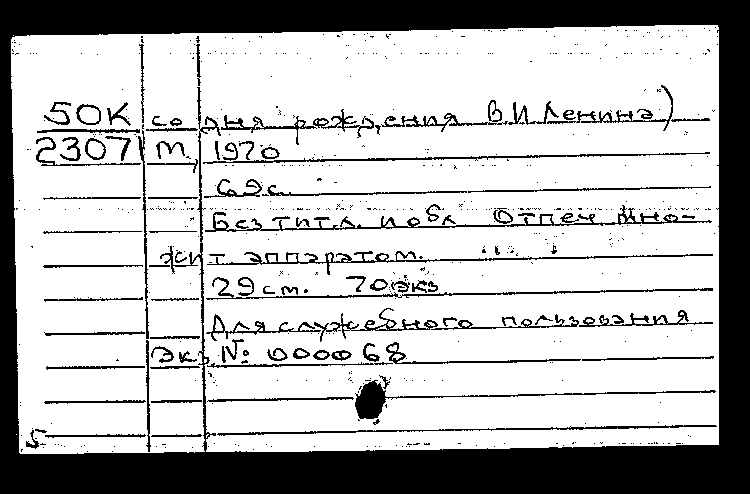 50К со дня рождения В.И Ленина)
23071 М, 1970
69с.
Без тит.л. и обл Отпеч мно-
жит. аппаратом.
29 см. 70 экз
Для служебного пользования
экз № 000068
5